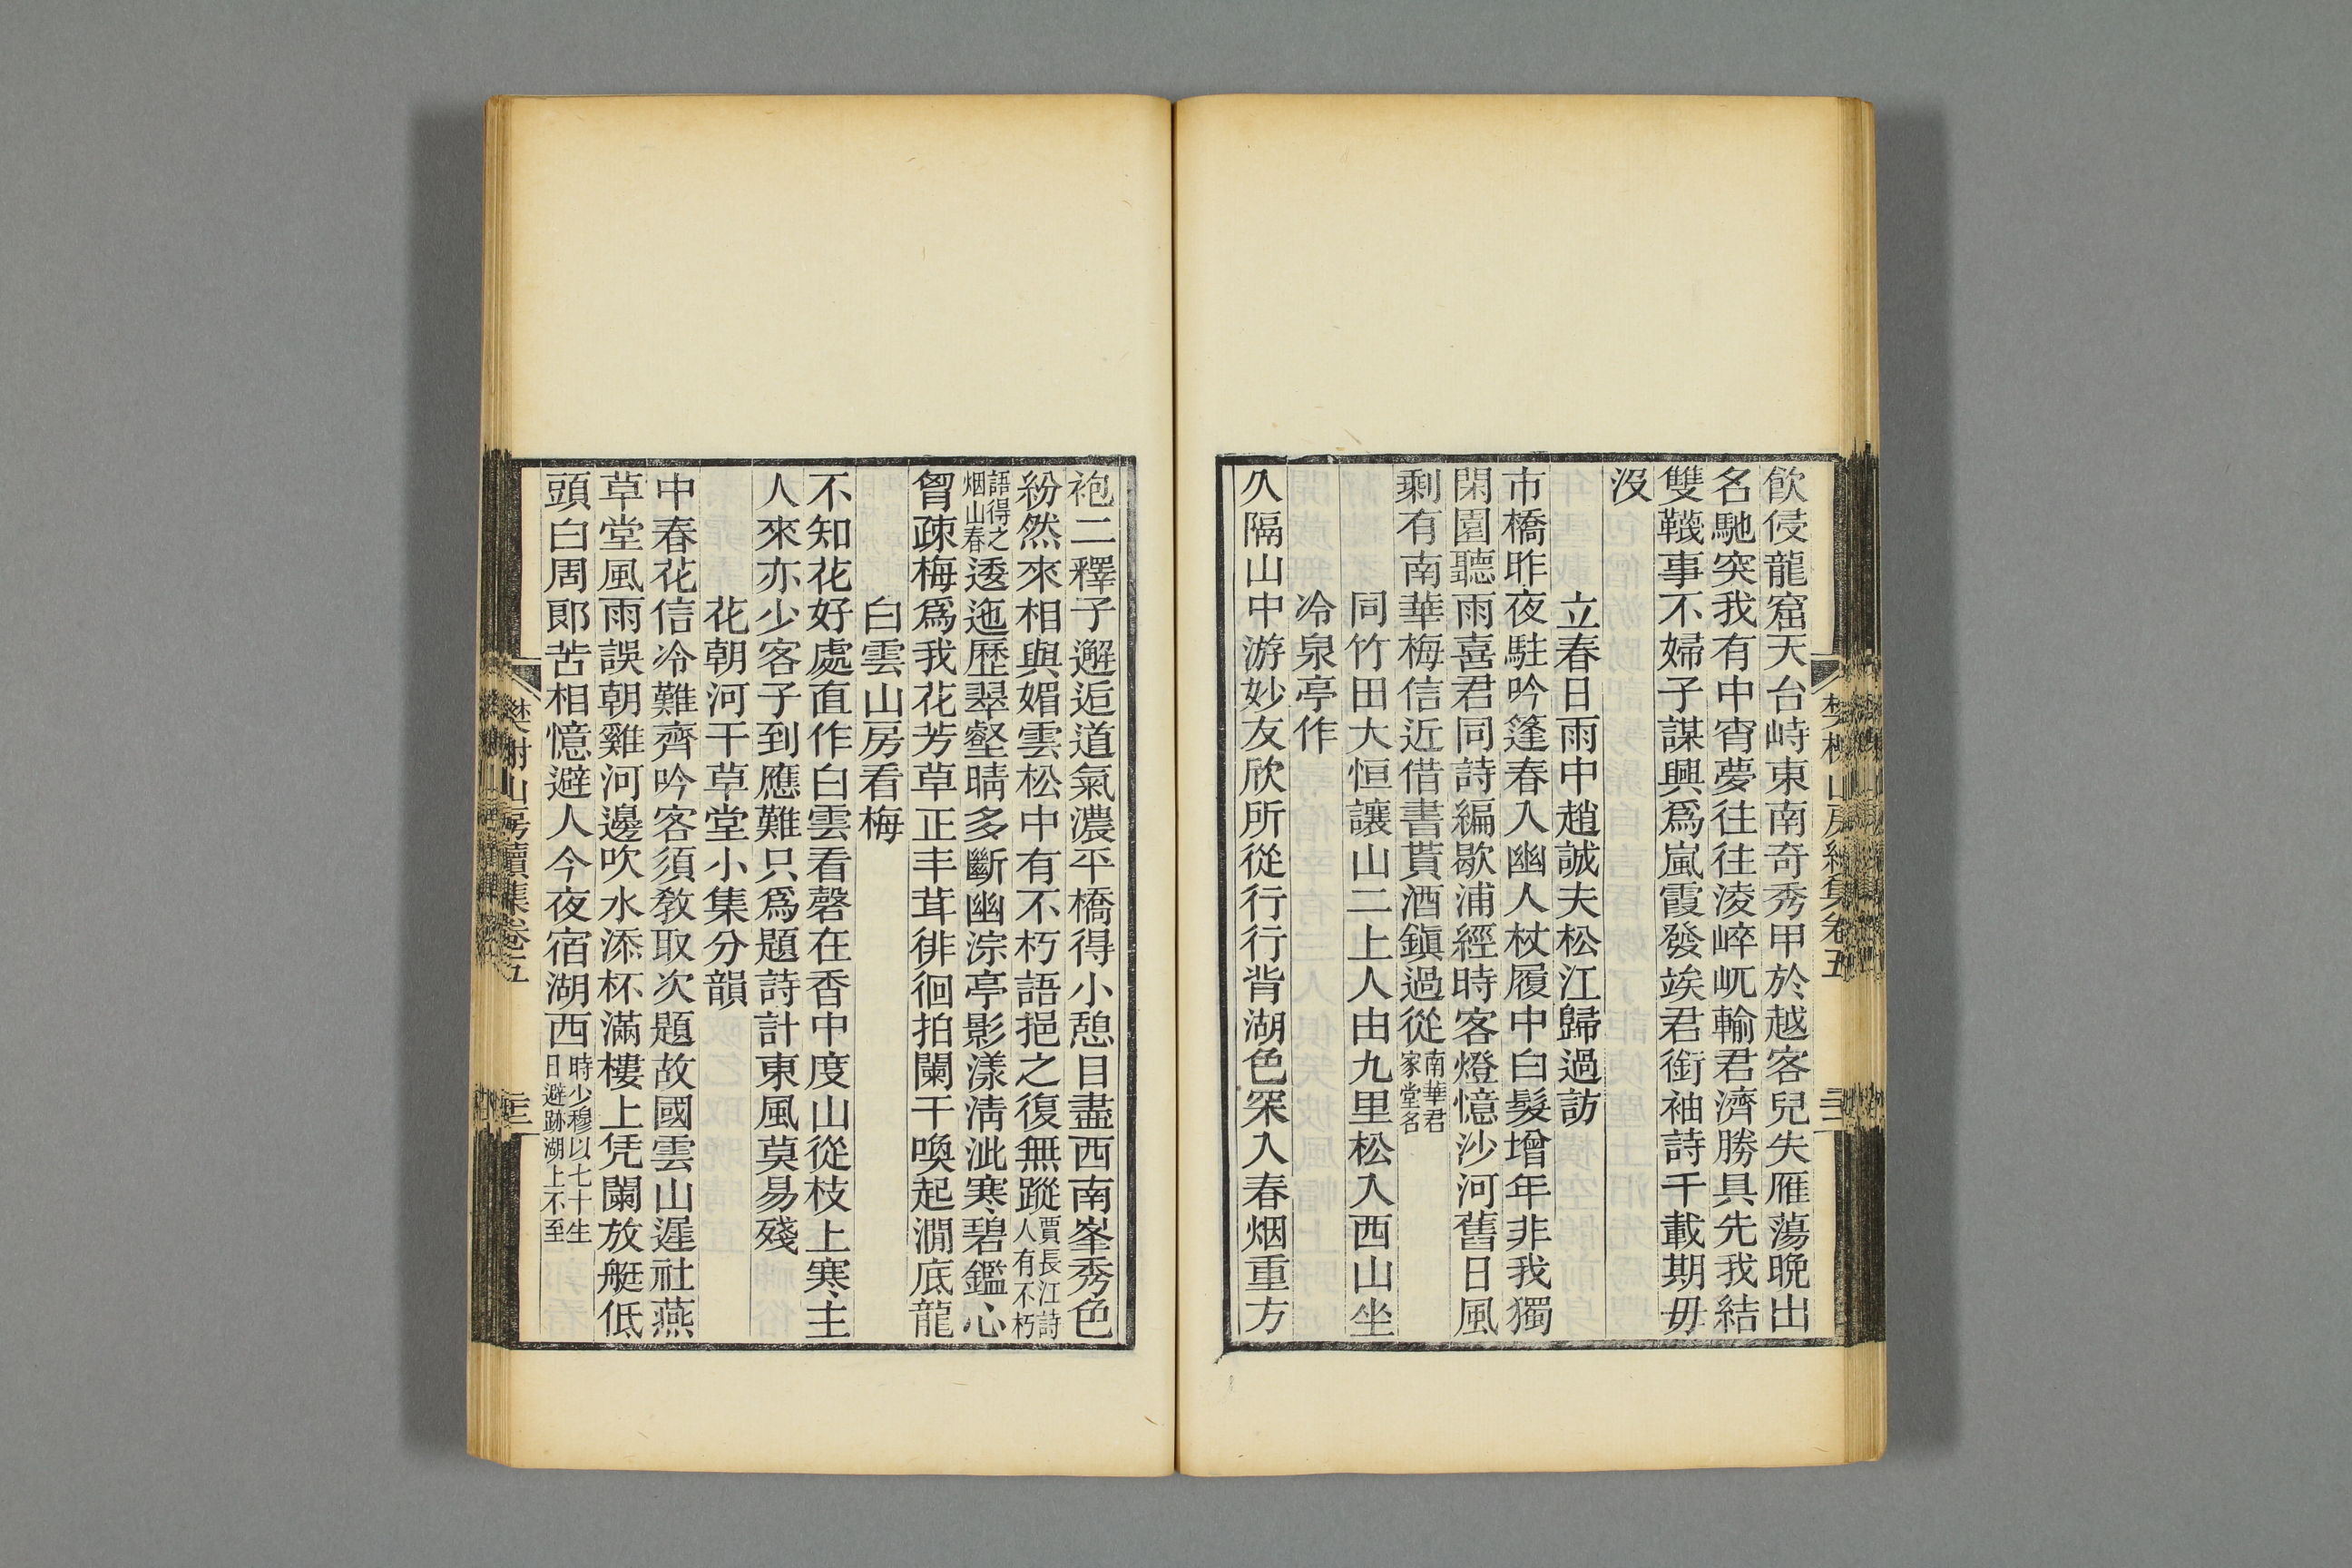 飮侵龍窟天台峙東南奇秀甲於越客兒失雁蕩晚出
名馳突我有中宵夢往往淩崒屼輸君濟勝具先我結
雙韈事不婦子謀興爲嵐霞發竢君銜袖詩千載期毋
沒
立春日雨中趙誠夫松江歸過訪
市橋昨夜駐吟篷春入幽人杖履中白髮增年非我獨
閑園聽雨喜君同詩編歇浦經時客燈憶沙河舊日風
剩有南華梅信近借書貰酒鎭過從南華君家堂名
同竹田大恒讓山二上人由九里松入西山坐
冷泉亭作
久隔山中游妙友欣所從行行背湖色罙入春烟重方
樊榭山房續集卷五
袍二釋子邂逅道氣濃平橋得小憩目盡西南峯秀色
紛然來相與媚雲松中有不朽語挹之復無蹤賈長江詩人有不朽
語得之烟山春逶迤歷翠壑晴多斷幽淙亭影漾淸泚寒碧鑑心
曾疎梅爲我花芳草正丰茸徘徊拍闌干喚起澗底龍
白雲山房看梅
不知花好處直作白雲看磬在香中度山從枝上寒主
人來亦少客子到應難只爲題詩計東風莫易殘
花朝河干草堂小集分韻
中春花信冷難齊吟客須敎取次題故國雲山遲社燕
草堂風雨誤朝雞河邊吹水添杯滿樓上凭闌放艇低
頭白周郞苦相憶避人今夜宿湖西時少穆以七十生日避跡湖上不至
樊榭山房續集卷五